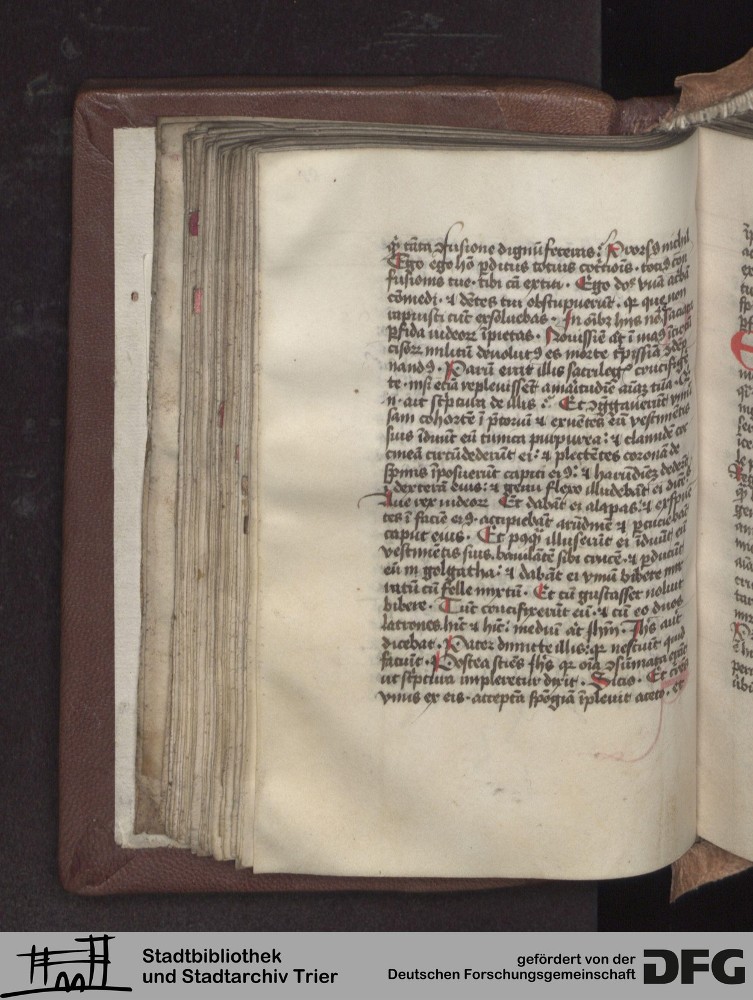 q̄ tāta ꝯfusione dignū feceris: Prors9 nichil
Ego ego hō ꝑditus totius
fusionis tue tibi cā extiti. Ego dn̄e vuā acbā
cōmedi. ⁊ dētes tui obstupuerūt. q̄ que non
rapuisti tūc exsoluebas. In oībꝫ hijs nō
ꝑfida iudeoꝝ īpietas. Nouissime
militū es morte
nand9. Parū erit illis sacrilegꝭ crucifige
te. nisi eciā replerēt amaritudīe aīaꝫ tuā.
n. ait sc̄ptura de illis: Et ꝯg̃gauerūt vniū
sam cohortē ī p̄toriū ⁊ exuētes eū vestimētis
suis īduūt eū tunica purpurea: ⁊ clamidē coc
cineā circūdederūt ei: ⁊ plectētes coronā de
spinis īposuerūt capiti ei9: ⁊ harūdinē
ī dexterā eius: ⁊ genu flexo illudebāt ei
Aue rex iudeoꝝ Et dabāt ei alapas: ⁊ exspue
tes ī faciē ei9. accipiebāt arūdinē ⁊ ꝑcuciebāt
caput eius. Et illuserūt ei īduūt eū
vestimētis suis. baiulātē sibi crucē. ⁊ ꝑducūt
eū in golgatha: ⁊ dabāt ei vinū bibere mir
ratū cū felle mixtū. Et cū gustasset noluit
bibere. Tūc crucifixerūt eū. ⁊ cū eo duos
latrones. hīc ⁊ hīc: mediū āt ihm̄. Ihs aūt
dicebat. Pater dimitte illis: q̄ nesciūt quid
faciūt. Postea sciēs ihs q̄ oīa ꝯsūmata
ut sc̄ptura impleretur dixit. Sicio. Et
vnus ex eis. acceptā spōgiā īpleuit aceto. et
Stadtbibliothek
und Stadtarchiv Trier
gefördert von der
Deutschen Forschungsgemeinschaft
DFG